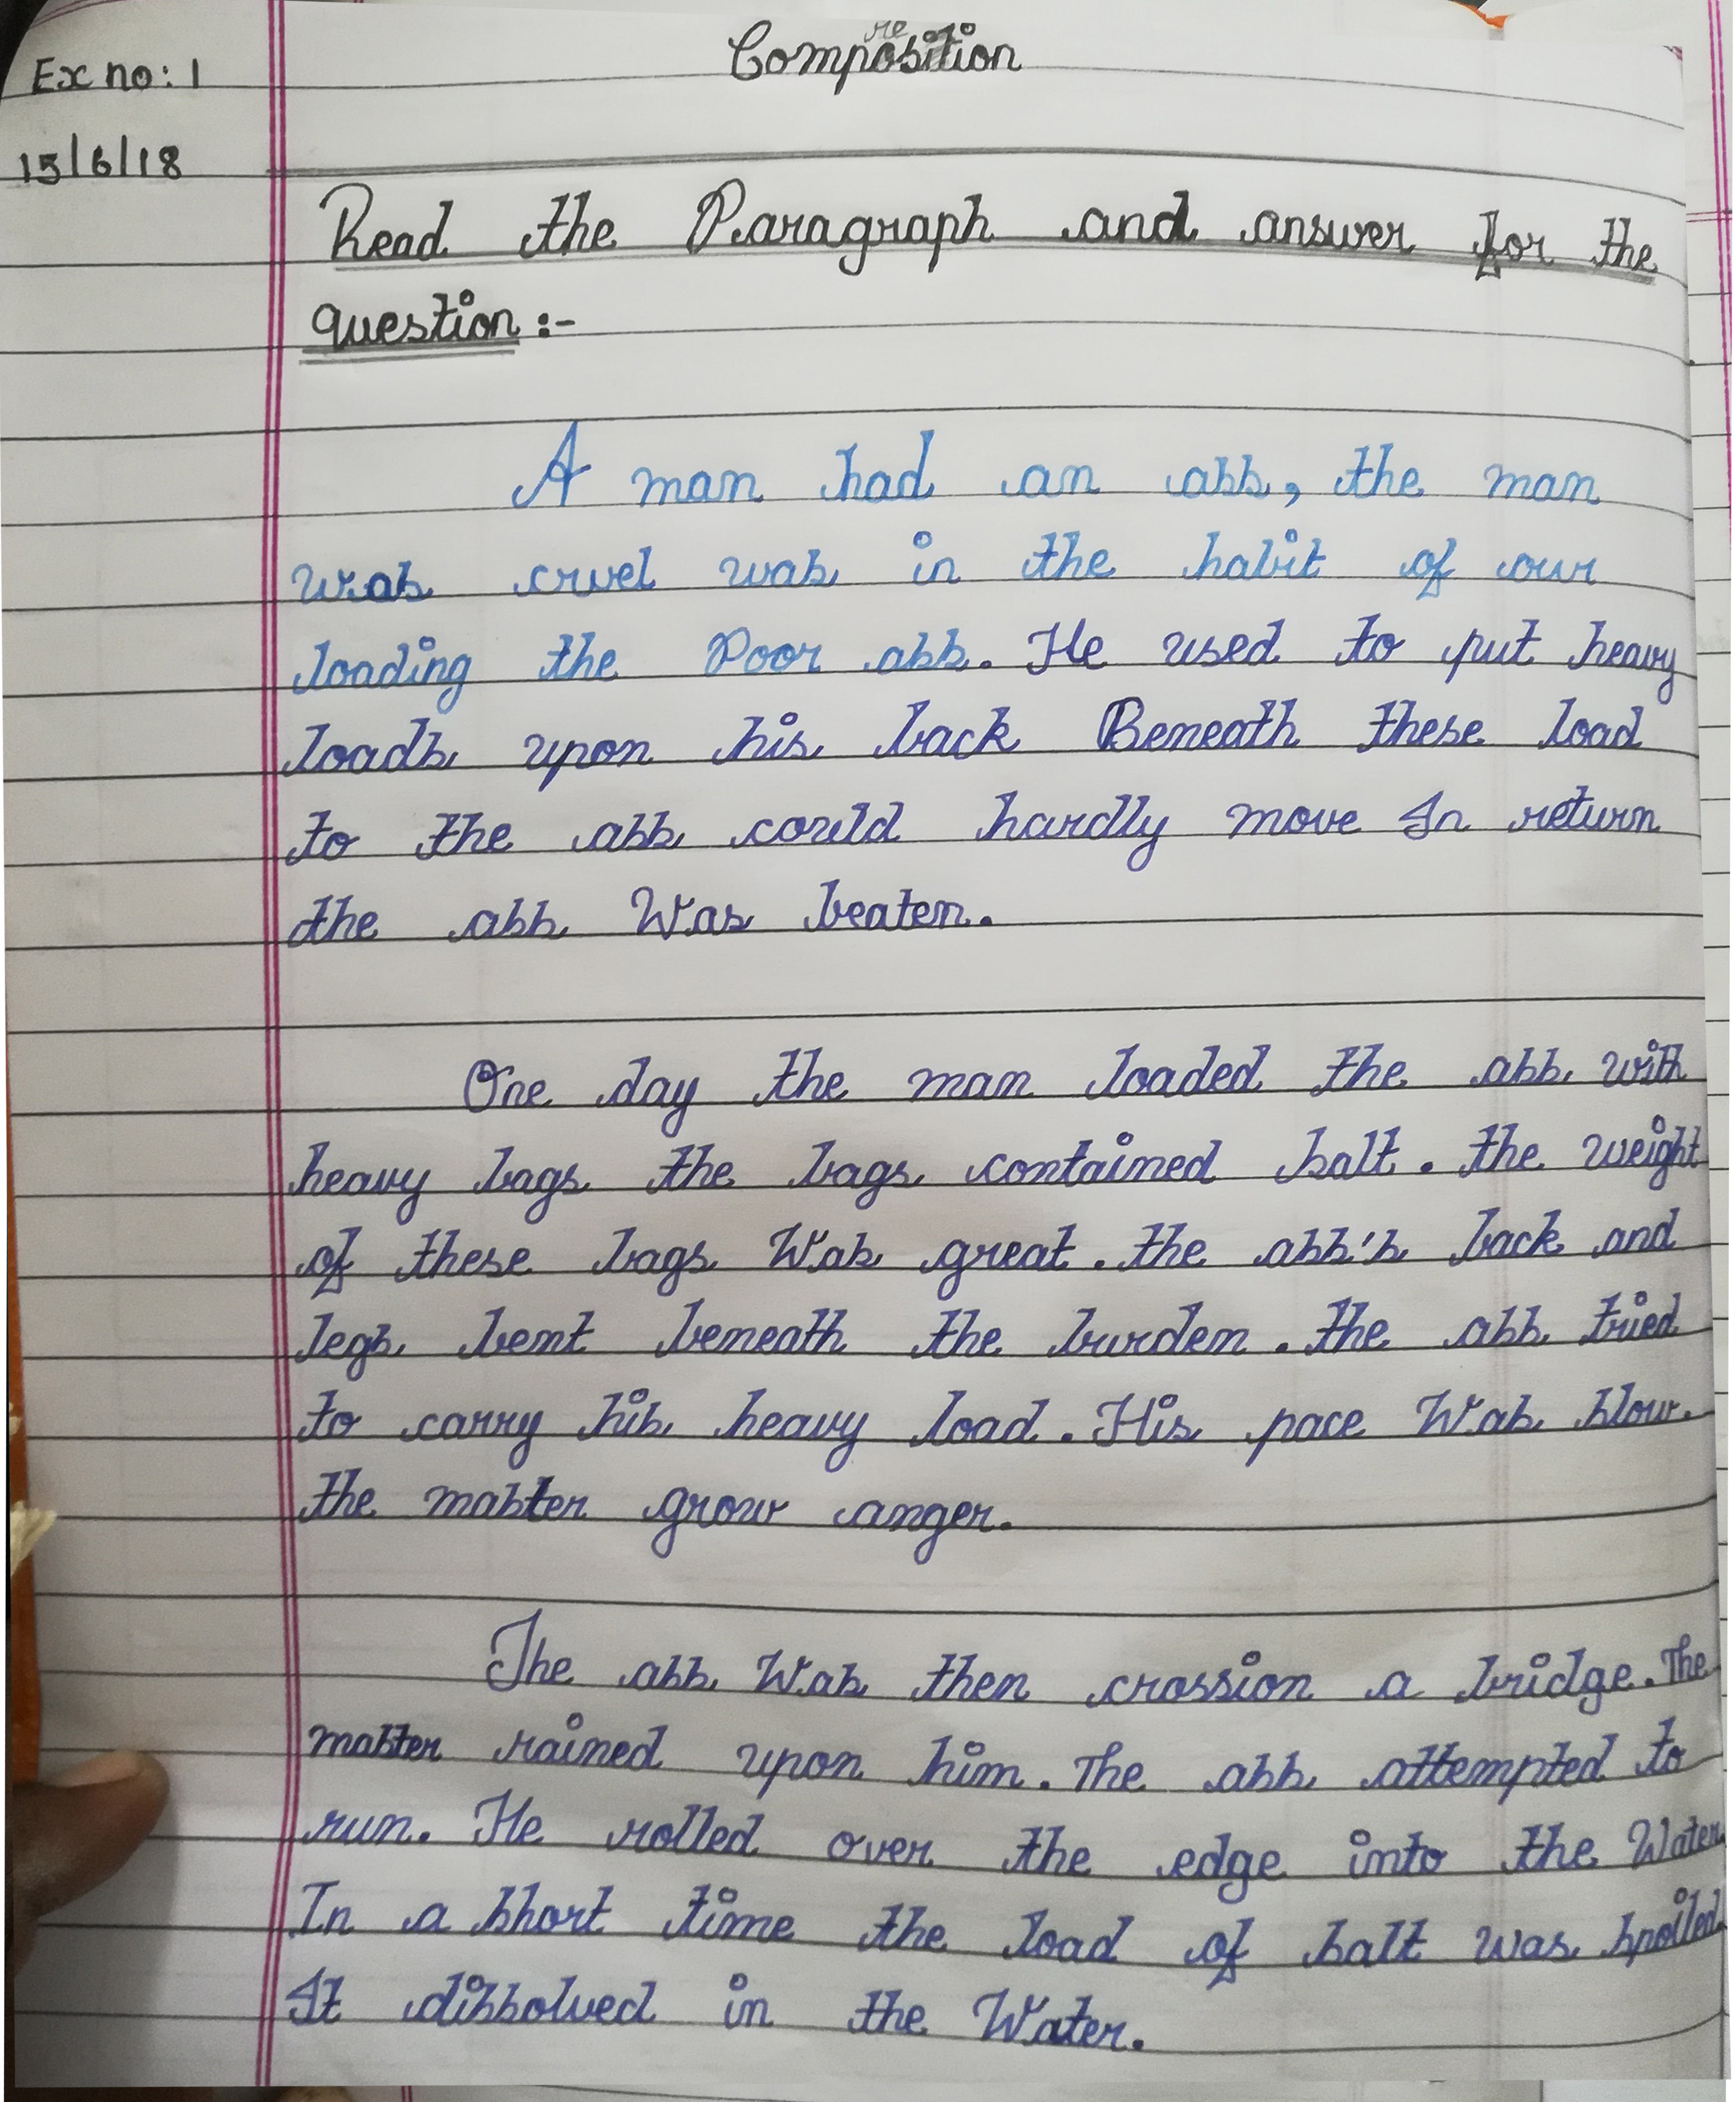 Composition
re
Ex no: 1
15/6/18
Read the Paragraph and answer for the
question :-
A man had an ass, the man
was cruel was in the habit of our
loading the Poor ass. He used to put heavy
loads upon his back Beneath these load
to the ass could hardly move In return
the ass Was beaten.
One day the man loaded the ass with
heavy bags the bags contained salt. the weight
of these bags Was great. the ass's back and
legs bent beneath the burden. the ass tried
to carry his heavy load. His pace Was slow.
the master grow anger.
The ass Was then crossion a bridge. The
master rained upon him. The ass attempted to
run. He rolled over the edge into the Water
In a short time the load of salt was spoiled
It dissolved in the Water.